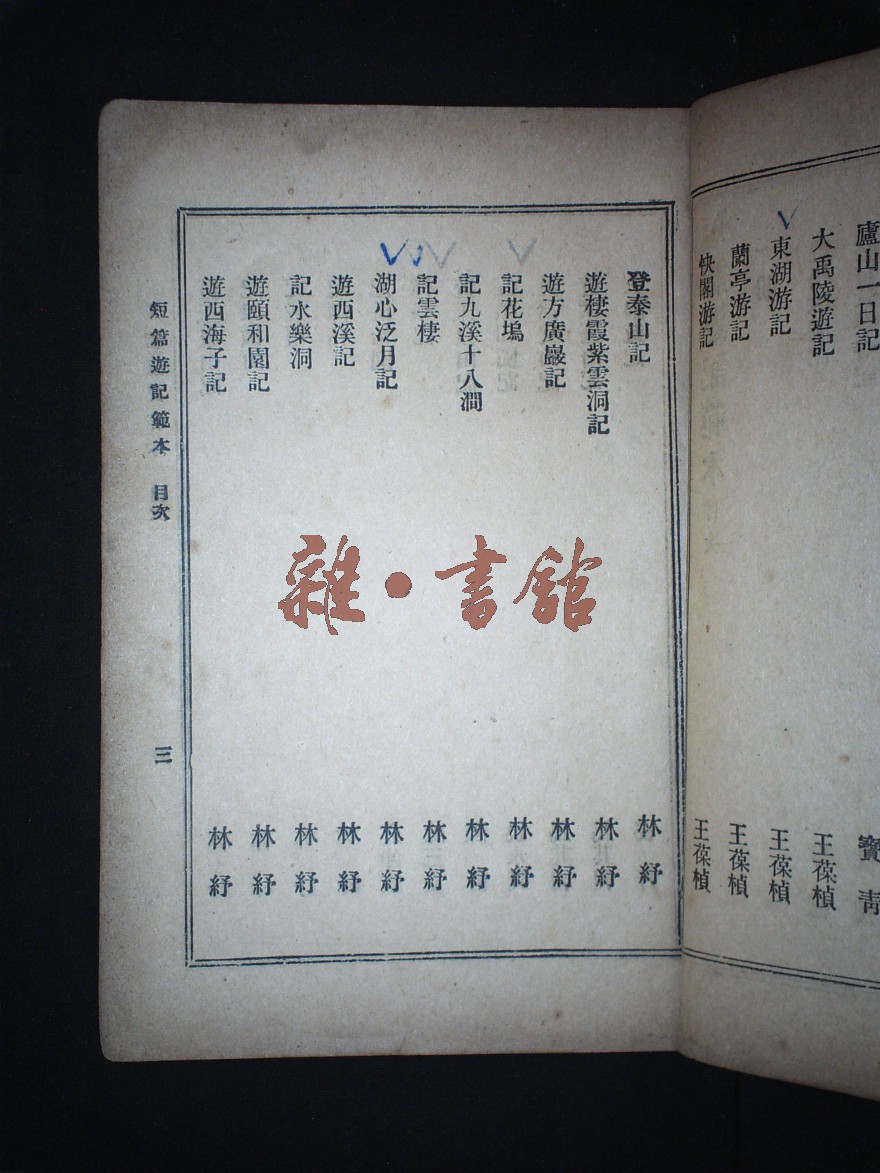 廬山一日記 寶青
大禹陵遊記 王葆楨
東湖游記 王葆楨
蘭亭游記 王葆楨
快閣游記 王葆楨
登泰山記 林紓
遊棲霞紫雲洞記 林紓
遊方廣巖記 林紓
記花塢 林紓
記九溪十八澗 林紓
記雲棲 林紓
湖心泛月記 林紓
遊西溪記 林紓
記水樂洞 林紓
遊頤和園記 林紓
遊西海子記 林紓
短篇遊記範本 目次
三
雜·書館